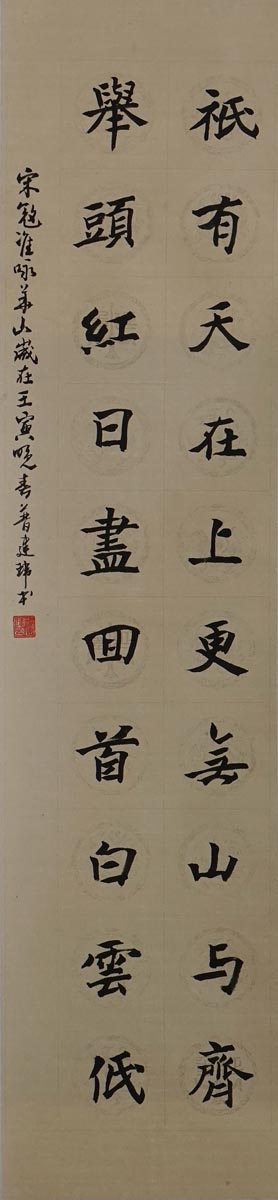 祇有天在上更無山与齊
舉頭紅日盡囬首白雲低
宋寇准咏华山歲在壬寅晚春曾建瑋书